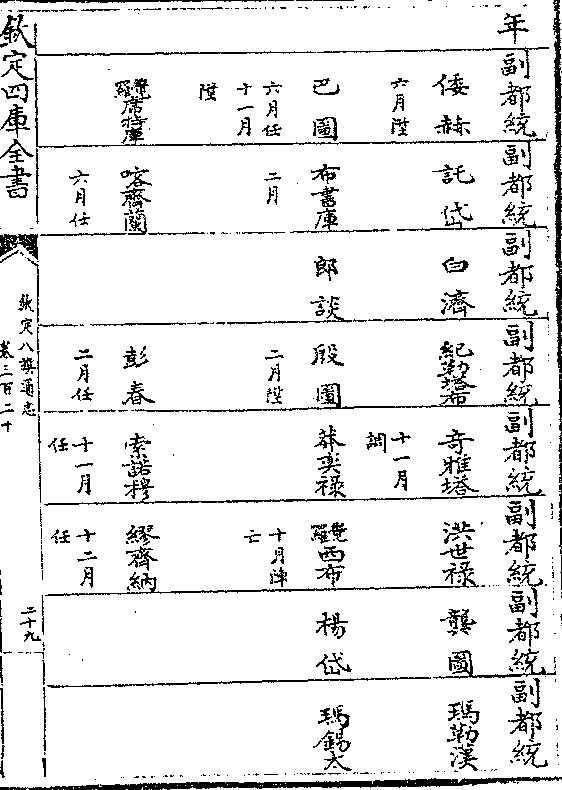 年 副都統 副都統 副都統 副都統 副都統 副都統 副都統 副都統
倭赫 託岱 白濟 紀勒塔布 奇雅塔 洪世祿 龔圖 瑪勒漢
六月陞 十一月調
巴圖 布書庫 郎談 殷圖 莽奕祿 覺羅西布 楊岱 瑪錫太
六月任十一月陞 二月 二月陞 十月陣亡
覺羅席特庫 喀齊蘭 彭春 索諾穆 繆齊納
六月任 二月任 十一月任 十二月任
欽定四庫全書
欽定八旗通志
卷三百二十
二十九